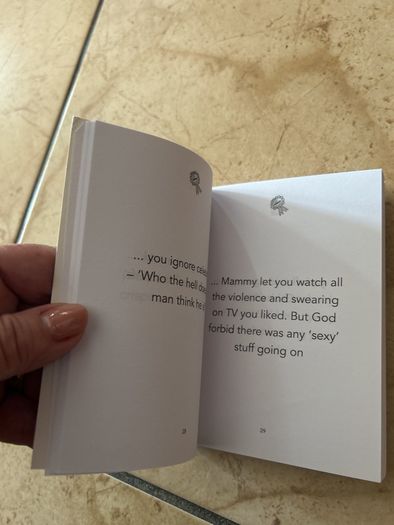 ... you ignore
– 'Who the hell
man think he
28
... Mammy let you watch all
the violence and swearing
on TV you liked. But God
forbid there was any 'sexy'
stuff going on
29